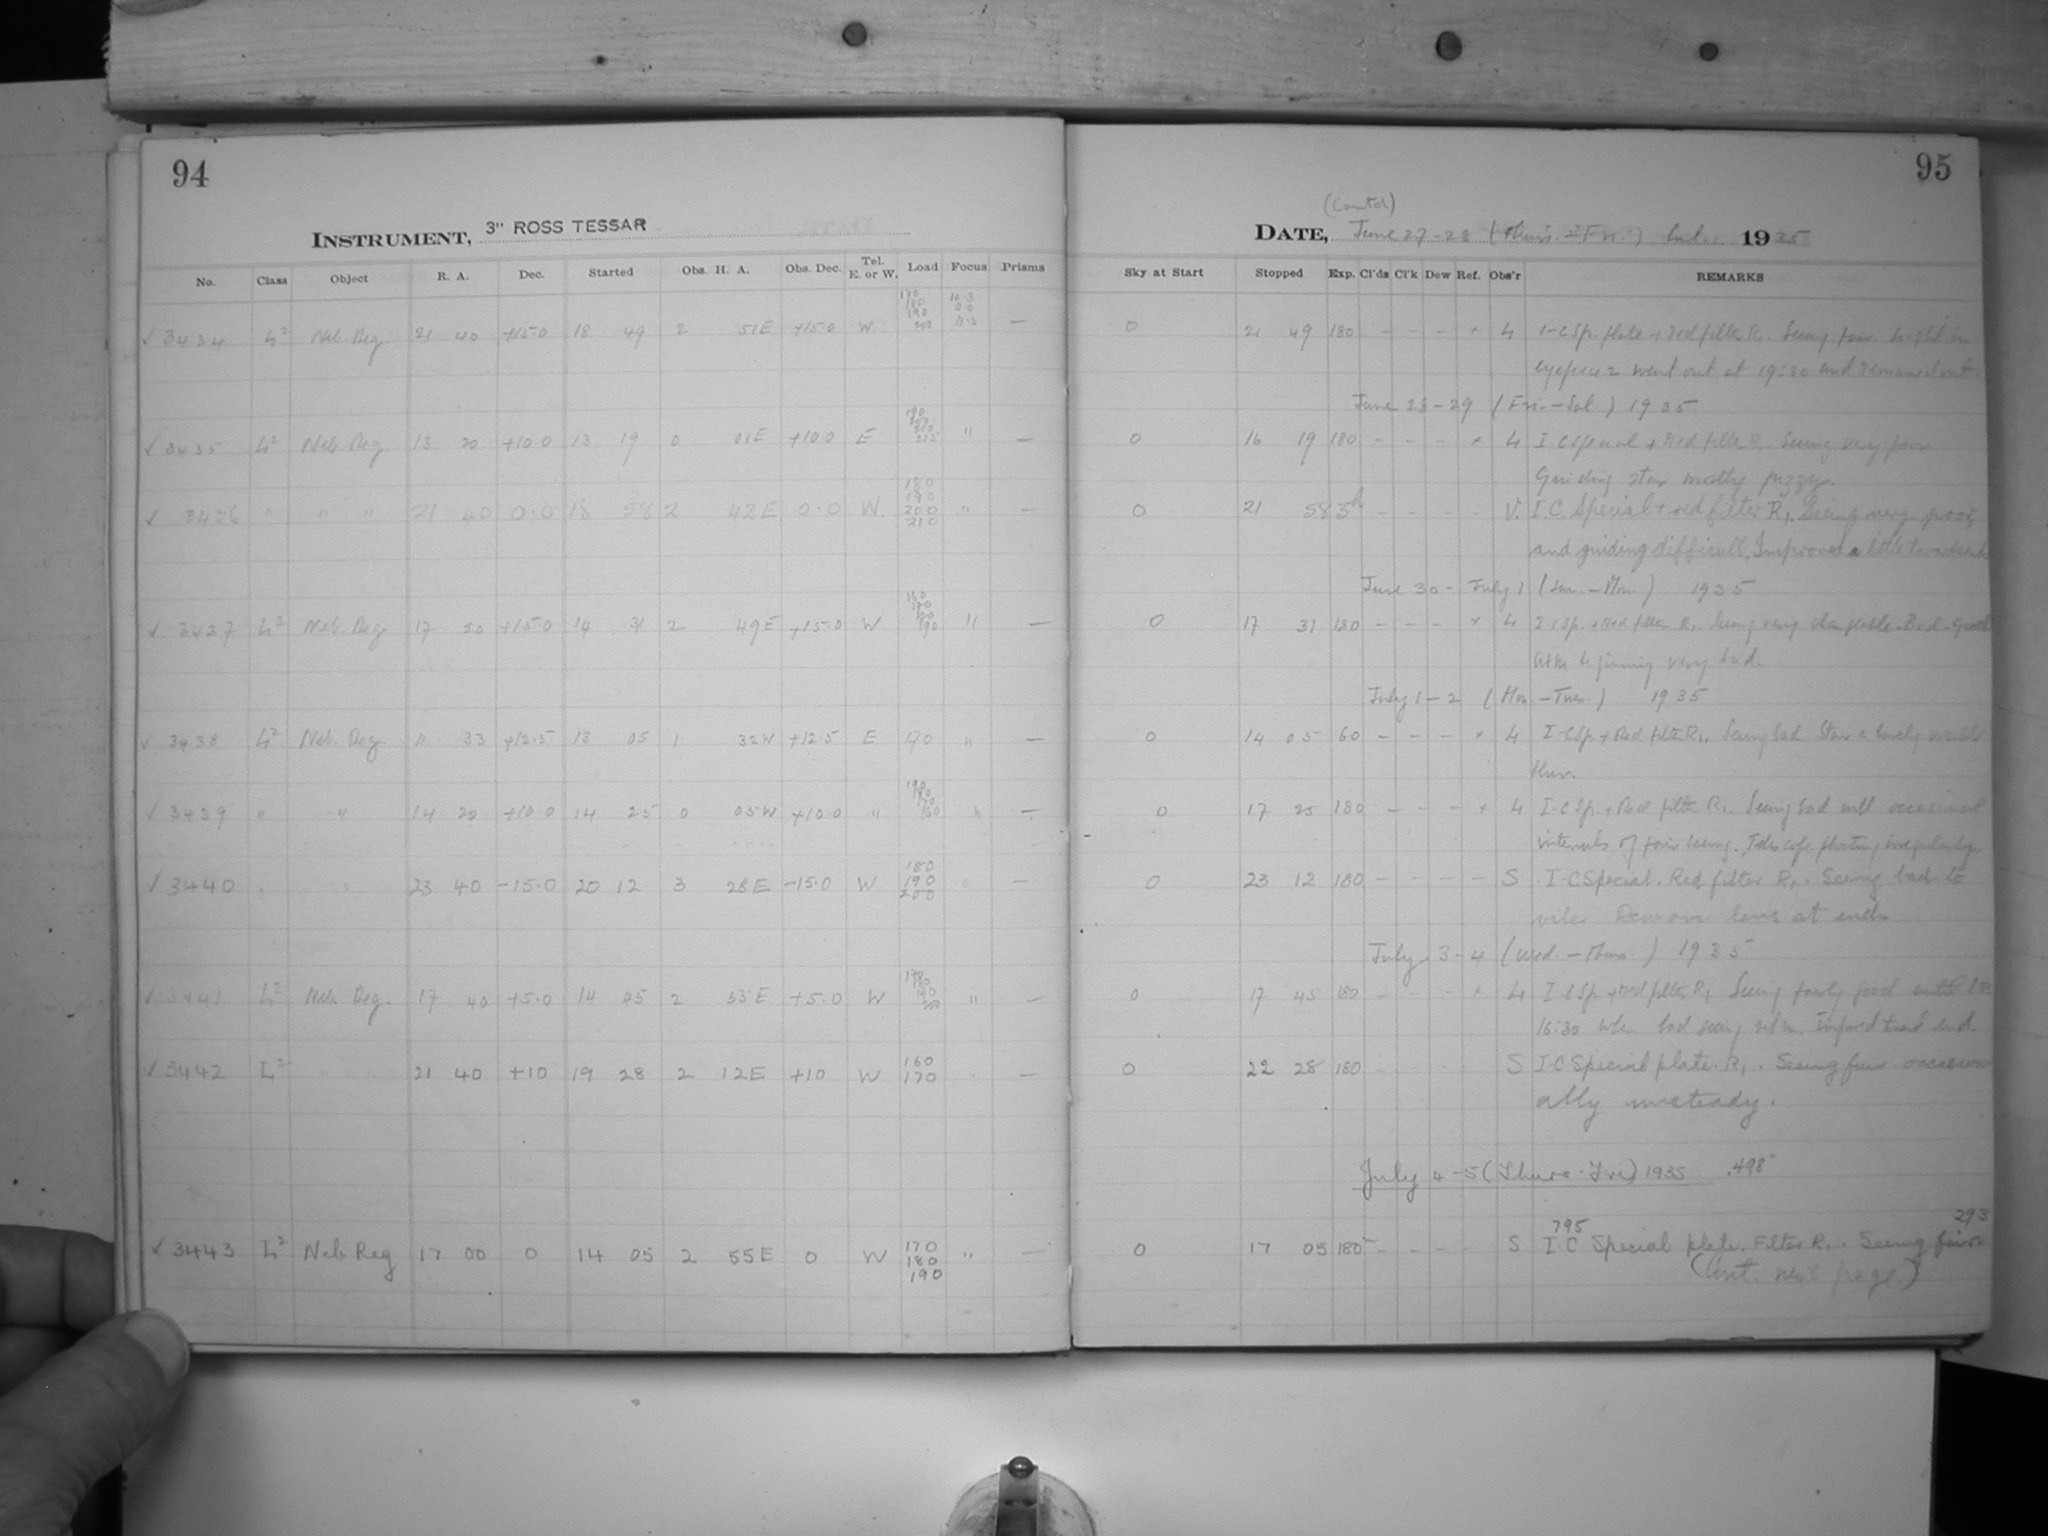 94
INSTRUMENT, 3" ROSS TESSAR
No. Class Object R. A. Dec. Started Obs. H. A. Obs. Dec. Tel. E. or W. Load Focus Prisms
170
180
190
200
✓ 3434 L² Neb. Reg. 21 40 +15.0 18 49 2 51E +15.0 W —
190
200
210
215
✓ 3435 L² Neb. Reg 13 20 +10.0 13 19 0 01E +10.0 E " —
180
190
✓ 3436 " " " 21 40 0.0 18 58 2 42E 0.0 W. 200 " —
210
✓ 3437 L² Neb. Reg 17 20 +15.0 14 31 2 49E +15.0 W 190 " —
✓ 3438 L² Neb. Reg 11 33 +12.5 13 05 1 32W +12.5 E 170 " —
✓ 3439 " " 14 20 +10.0 14 25 0 05W +10.0 " 160 " —
180
✓ 3440 23 40 -15.0 20 12 3 28E -15.0 W 190 " —
200
✓ 3441 L² Neb. Reg. 17 40 +5.0 14 45 2 55E +5.0 W " —
✓ 3442 L² " " 21 40 +10 19 28 2 12E +10 W 160 —
170
✓ 3443 L² Neb Reg 17 00 0 14 05 2 55E 0 W 170 " —
180
190
95
(Contd)
DATE, June 27-28 (Thurs.-Fri.) 1935
Sky at Start Stopped Exp. Cl'ds Cl'k Dew Ref. Obs'r REMARKS
0 21 49 180 - - - × L I-C Sp. plate + Red filter R₁. Seeing fair. Light in
eyepiece went out at 19:30 and remained out
June 28-29 (Fri.-Sat.) 1935
0 16 19 180 - - - × L I-C Special + Red filter R₁. Seeing very poor
Guiding star mostly fuzzy.
0 21 58 3h - - - - V. I.C. Special + red filter R₁. Seeing very poor,
and guiding difficult. Improved a little towards end
June 30 - July 1 (Sun.-Mon.) 1935
0 17 31 180 - - - × L I-C Sp. + Red filter R₁. Seeing very changeable-Bad-Good
At the beginning very bad.
July 1-2 (Mon-Tues.) 1935
0 14 05 60 - - - × L I-C Sp. + Red filter R₁. Seeing bad. Stars a barely visible
blur.
0 17 25 180 - - - × L I-C Sp. + Red filter R₁. Seeing bad with occasional
intervals of fair seeing. Telescope floating irregularly
0 23 12 180 - - - - S I-C Special. Red filter R₁. Seeing bad to
vile. Dew on lens at end.
July 3-4 (Wed.-Thurs.) 1935
0 17 45 180 - - - × L I-C Sp + Red filter R₁ Seeing fairly good until
16:30 when bad seeing set in. Improved toward end.
0 22 28 180 - - - S I-C Special plate. R₁. Seeing fair occasion
ally unsteady.
July 4-5 (Thurs-Fri) 1935 .498
795 293
0 17 05 180 - - - - S I C Special plate. Filter R₁. Seeing fair.
(Cont. next page.)